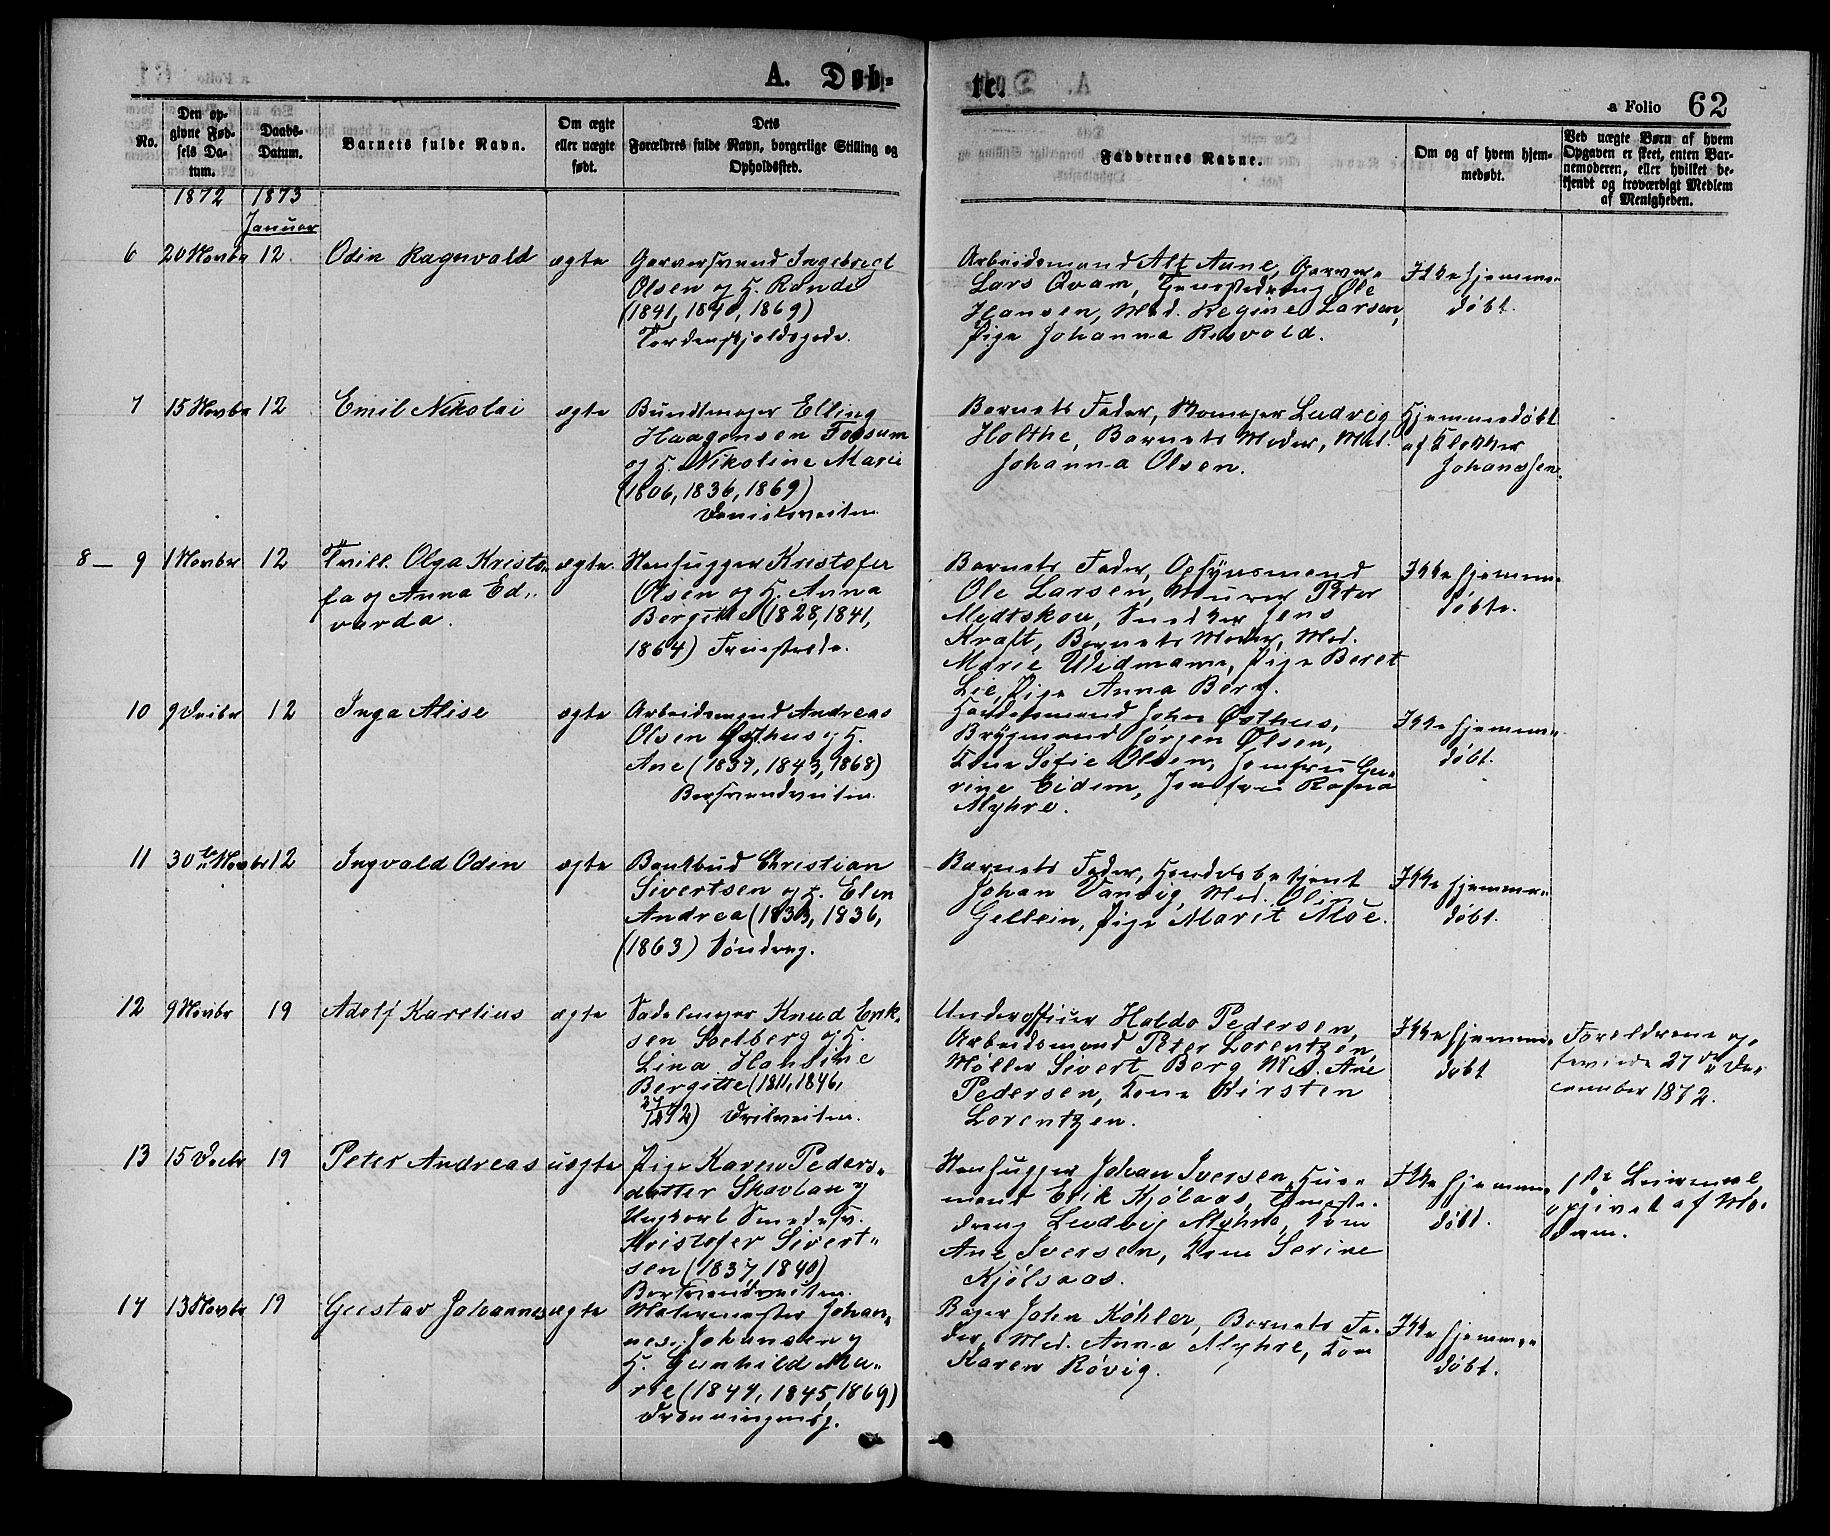 A. Døb-
te.
a Folio 62
No.
Den op-
givne Fød-
sels Da-
tum.
Daabs-
Datum.
Barnets fulde Navn.
Om ægte
eller uægte
født.
Dets
Forældres fulde Navn, borgerlige Stilling og
Opholdssted.
Faddernes Navne.
Om og af hvem hjem-
medøbt.
Ved uægte Børn af hvem
Opgaven er skeet, enten Bar-
nemoderen, eller hvilket be-
kjendt og troværdigt Medlem
af Menigheden.
1872 1873
Januar
6 20 Novbr 12. Odin Ragnvald ægte
Garversvend Ingebrigt
Olsen og H. Randi
(1841, 1840, 1869)
Tordenskjoldsgade.
Arbeidsmand Alf Aune, Garver
Lars Qvam, Tjenestedreng Ole
Hansen, Mad. Regine Larsen,
Pige Johanna Risvold.
Ikke hjemme-
døbt.
7 15 Novbr 12 Emil Nikolai ægte
Bundtmager Elling
Haagensen Fossum
og H. Nikoline Marie
(1806, 1836, 1869)
Barnets Fader, Skomager Ludvig
Holthe, Barnets Moder, Mad.
Johanna Olsen.
Hjemmedøbt
af Klokker
Johanssen.
8 - 9 1 Novbr 12 Tvill. Olga Kristo-
fa og Anna Ed-
varda.
ægte.
Stenhugger Kristofer
Olsen og H. Anna
Bergitte (1828, 1841,
1864) Fruestrede.
Barnets Fader, Opsynsmand
Ole Larsen, Murer Peter
Medtskou, Snedker Jens
Kraft, Barnets Moder, Mad.
Marie Widmann, Pige Beret
Lie, Pige Anna Berg.
Ikke hjemme-
døbte.
10 9 Decbr 12 Inga Alise ægte
Arbeidsmand Andreas
Olsen Østhus og H.
Ane (1837, 1843, 1868)
Bersvendveiten.
Handelsmand John Østhus,
Brygmand Jørgen Olsen,
Kone Sofie Olsen, Jomfru Gu-
rine Eidem, Jomfru Ragna
Myhre.
Ikke hjemme-
døbt.
11 30te Novbr 12 Ingvald Odin ægte
Bankbud Christian
Sivertsen og H. Elen
Andrea (1833, 1836,
(1863) Søndreg.
Barnets Fader, Handelsbetjent
Johan Vanvig, Mad. Olin
Gellein, Pige Marit Moe.
Ikke hjemme-
døbt.
12 9 Novbr 19 Adolf Karelius ægte
Sadelmager Knud Erik-
sen Solberg og H.
Lina Hansine
Bergitte (1811, 1846,
27/12 72)
Underofficier Haldo Pedersen,
Arbeidsmand Peter Lorentzen,
Møller Sivert Berg, Mad. Ane
Pedersen, Kone Kirsten
Lorentzen.
Ikke hjemme-
døbt
Foreldrene og-
teviede 27de De-
cember 1872.
13 15 Decbr 19 Peter Andreas uægte
Pige Karen Peders-
datter Skavlan og
Ungkarl Smedsv.
Kristofer Sivert-
sen (1837, 1840)
Bersvendveiten.
Stenhugger Johan Iversen, Huus-
mand Erik Kjølaas, Tjeneste-
dreng Ludvig Myhre, Kone
Ane Iversen, Kone Serine
Kjølsaas.
Ikke hjemme-
døbt.
1ste Leiermaal
opgivet af Mo-
deren.
14 13 Novbr 19 Gustav Johannes ægte
Malermester Johan-
nes Johansen og
H. Gunhild Ma-
rie (1844, 1845, 1869)
Dronningensg.
Bager John Køhler, Barnets Fa-
der, Mad. Anna Myhre, Kone
Karen Røvig.
Ikke hjemme-
døbt.